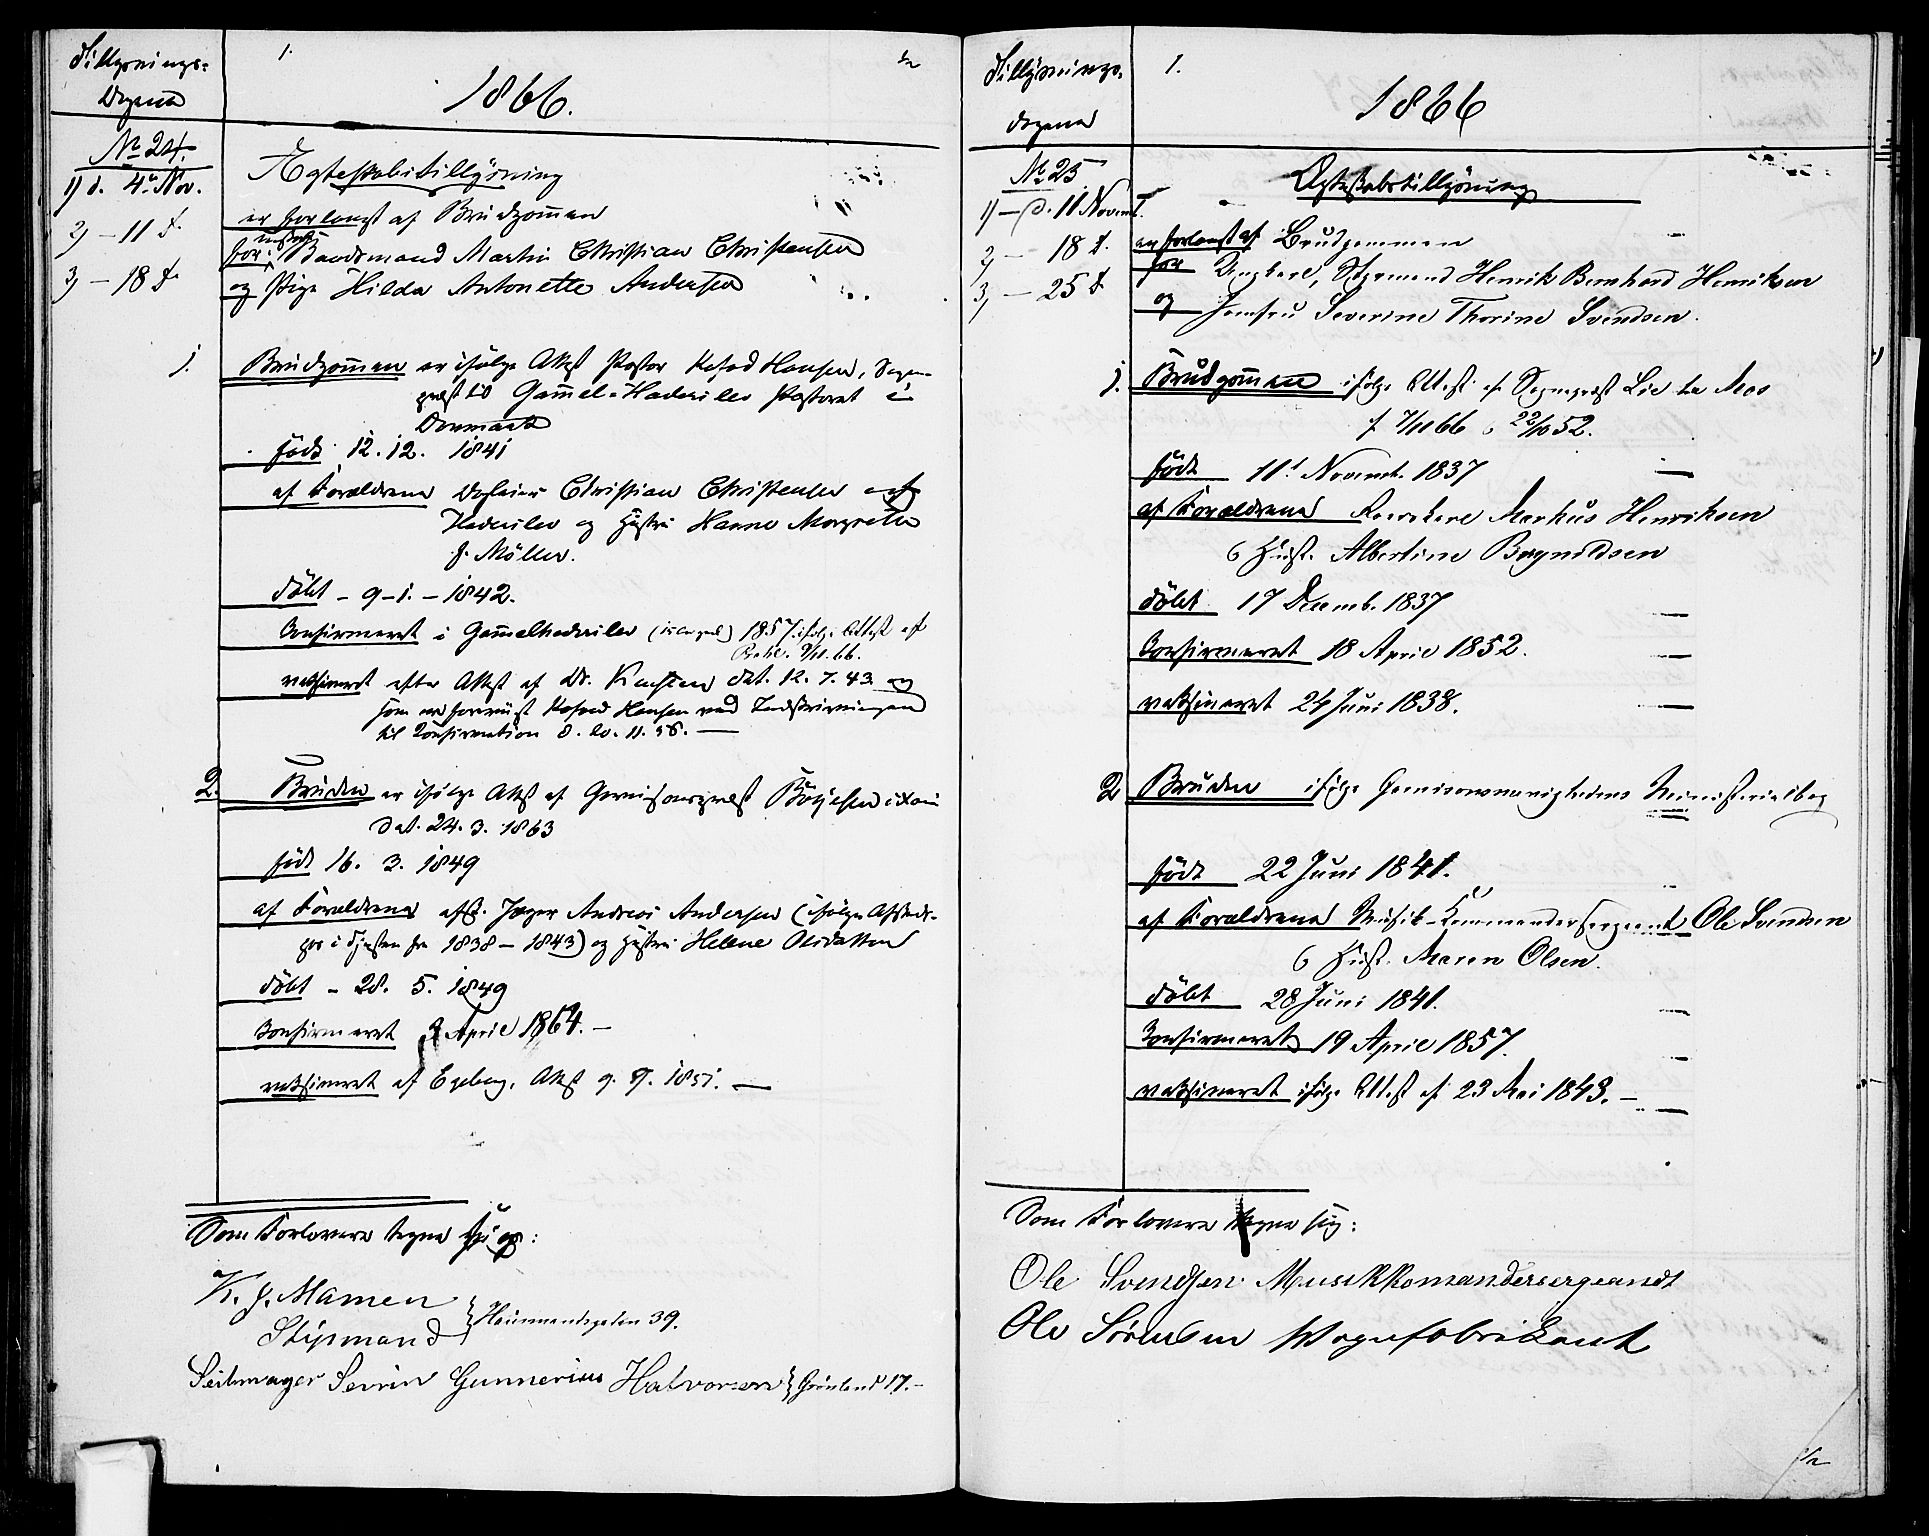 Tillysnings-
Dagene
1.
1866.
No 24.
1) d. 4de Nov.
2) – 11 d.
3) – 18 d.
Ægteskabstillysning
er forlangt af Brudgommen
for: Baadsmand Martin Christian Christensen
og Pige Hilda Antonette Andersen
1. Brudgommen er ifølge Attest Pastor Kofoed Hansen, Sogne-
prest til Gammel-Haderslev Pastorat i
Danmark
født 12.12. 1841
af Forældrene Christian Christensen af
Haderslev og Hustru Hanne Margrethe
f. Möller.
döbt – 9–1.–1842.
Confirmeret i Gammelhaderslev 1857 ifølge Attest af
9/11.66.
vaksineret efter Attest af Dr. Karsten dat. 12. 7. 43 og
som er foreviist Kofoed Hansen ved Indskrivningen
til Confirmation d. 20. 11. 56. —
2. Bruden er ifølge Attest af Garnisonsprest
dat. 24. 3. 1863
født 16. 3. 1849
af Forældrene afsk. Jæger Andreas Andersen (ifølge
i Tjenesten fra 1838 – 1843) og Hustru Helene Olsdatter
döbt – 28. 5. 1849
Confirmeret 3 April 1864. –
vaksineret af Egeberg. Attest 9. 9. 1851. —
Som Forlovere tegne sig:
K. J. Mamen
Stÿrmand } 39.
Seilmager Sevrin Gunnerius Halvorsen } Grønland 17.–
Tillysnings-
dagene
1.
1866
No 25
1) – d. 11 Novemb.
2) – 18 d.
3) – 25 d.
Ægteskabstillysning
er forlangt af Brudgommen
for Ungkarl, Styrmand Henrik Bernhard Henriksen
og Jomfru Severine Thorine Svendsen.
1. Brudgommen ifølge Attest af Sogneprest Lie fra Mos
af 7/11 66 o 22/10 52.
født 11te Novemb. 1837
af Forældrene Markus Henriksen
o Hust. Albertine Bagnildsen
döbt 17 Decemb. 1837
Confirmeret 18 April 1852.
vaksineret 24 Juni 1838.
2 Bruden ifølge Garnisonsmenighedens Ministerialbog
født 22 Juni 1841.
af Forældrene Musik-Kommandersergeant Ole Svendsen
o Hust. Maren Olsen.
döbt 28 Juni 1841.
Confirmeret 19 April 1857.
vaksineret ifølge Attest af 23 Mai 1843. –
Som Forlovere tegne sig:
Ole Svendsen Musikkomandersergeandt
Ole Sørensen Vognfabrikant